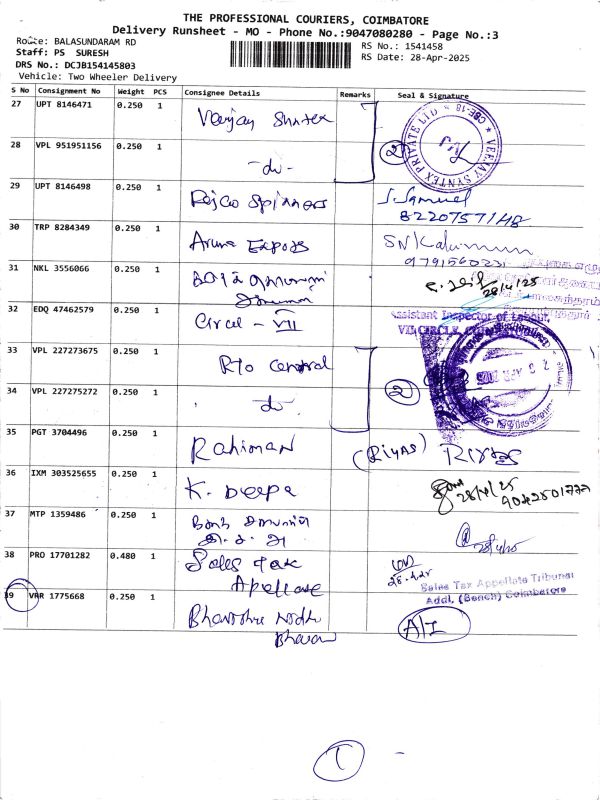 THE PROFESSIONAL COURIERS, COIMBATORE
Delivery Runsheet - MO - Phone No.:9047080280 - Page No.:3
Route: BALASUNDARAM RD
RS No.: 1541458
Staff: PS SURESH
RS Date: 28-Apr-2025
DRS No.: DCJB154145803
Vehicle: Two Wheeler Delivery
S No Consignment No Weight PCS Consignee Details Remarks Seal & Signature
27 UPT 8146471 0.250 1 Veejay Syntex
VEEJAY SYNTEX PRIVATE LTD ★ CBE-18 ★
28 VPL 951951156 0.250 1 -do- 2
29 UPT 8146498 0.250 1 Rajco Spinners S. Samuel
8220757148
30 TRP 8284349 0.250 1 Aruna Expogs
31 NKL 3556066 0.250 1
28/4/25
Assistant Inspector of Labour,
32 EDQ 47462579 0.250 1 Circel - VII
VII CIRCLE,
33 VPL 227273675 0.250 1 RTO Central
34 VPL 227275272 0.250 1 -do- 2
35 PGT 3704496 0.250 1 Rahiman (RIYAS) Riyas
36 IXM 303525655 0.250 1 K. Deepa 28/4/25
37 MTP 1359486 0.250 1
28/4/25
38 PRO 17701282 0.480 1 Sales Tax
Appellate
28.4.25
Sales Tax Appellate Tribunal
Addl. (Bench) Coimbatore
39 VRR 1775668 0.250 1
Bhavan
A/I
1 -